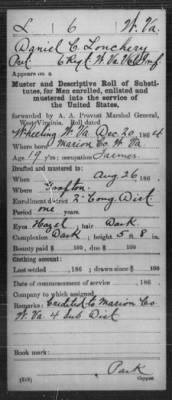 L 6 W. Va.
Daniel C. Lonchery
Pvt 6 Reg't W. Va. V. Inf
Appears on a
Muster and Descriptive Roll of Substitutes, for Men enrolled, enlisted and
mustered into the service of
the United States,
forwarded by A. A. Provost Marshal General,
West Virginia. Roll dated
Wheeling W. Va. Dec 20, 1864
Where born Marion Co. W. Va.
Age 19 y'rs; occupation Farmer
Drafted and mustered to:
When Aug 26, 186 .
Where Grafton
Enrollment district 2" Cong Dist
Period one years.
Eyes Hazel; hair Dark
Complexion Dark; height 5 ft 8 in.
Bounty paid $ 100; due $ 100
Clothing account:
Last settled , 186 ; drawn since $ 100
Date of commencement of service , 186 .
Company to which assigned
Remarks: Credited to Marion Co.
W. Va. 4 Sub Dist
Book mark:
Park
Copyist.